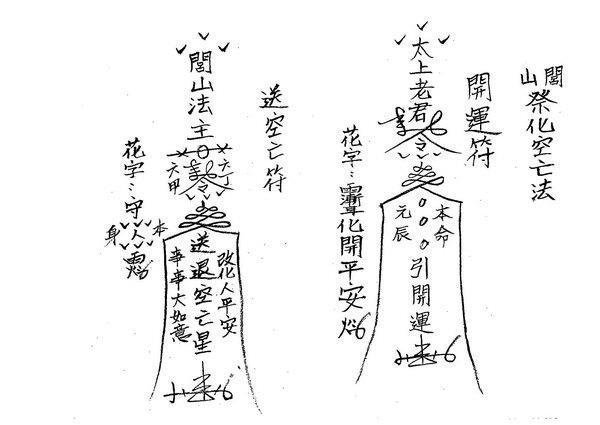 閭山祭化空亡法
開運符
太上老君
令
本命
元辰
引開運
花字：化開平安
送空亡符
閭山法主
六丁
六甲
令
改化人平安
送退空亡星
事事大如意
花字：守本人身